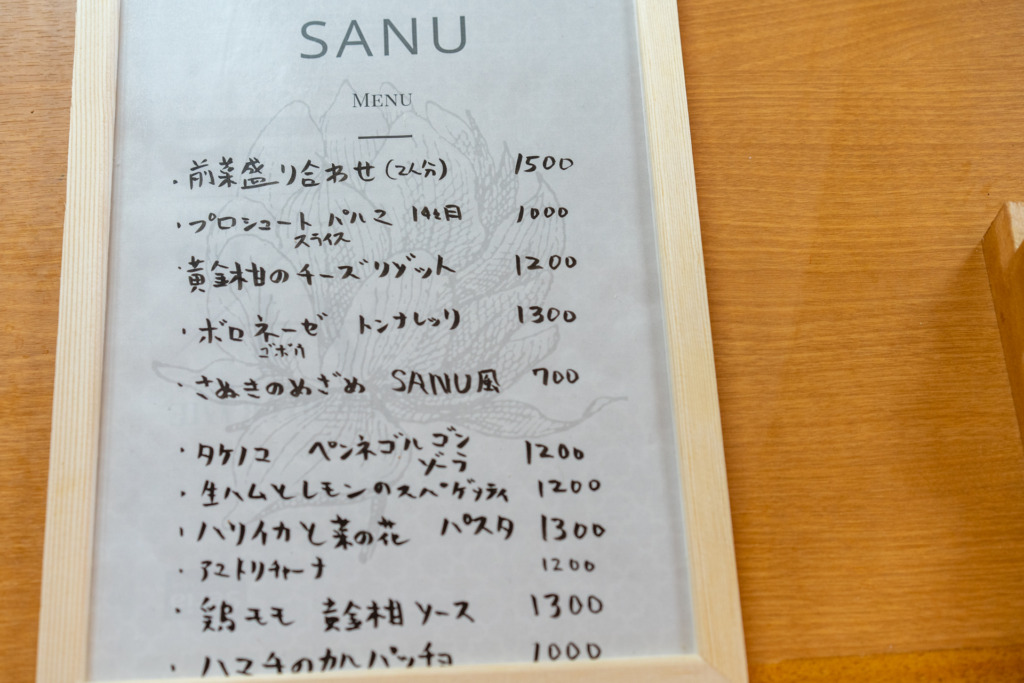 SANU
MENU
・前菜盛り合わせ(2人分) 1500
・プロシュート パルマ 14ヶ月 1000
スライス
・黄金柑のチーズリゾット 1200
・ボロネーゼ トンナレッリ 1300
ゴボウ
・さぬきのめざめ SANU風 700
・タケノコ ペンネゴルゴン 1200
ゾーラ
・生ハムとレモンのスパゲッティ 1200
・ハリイカと菜の花 パスタ 1300
・アマトリチャーナ 1200
・鶏モモ 黄金柑ソース 1300
・ハマチのカルパッチョ 1000